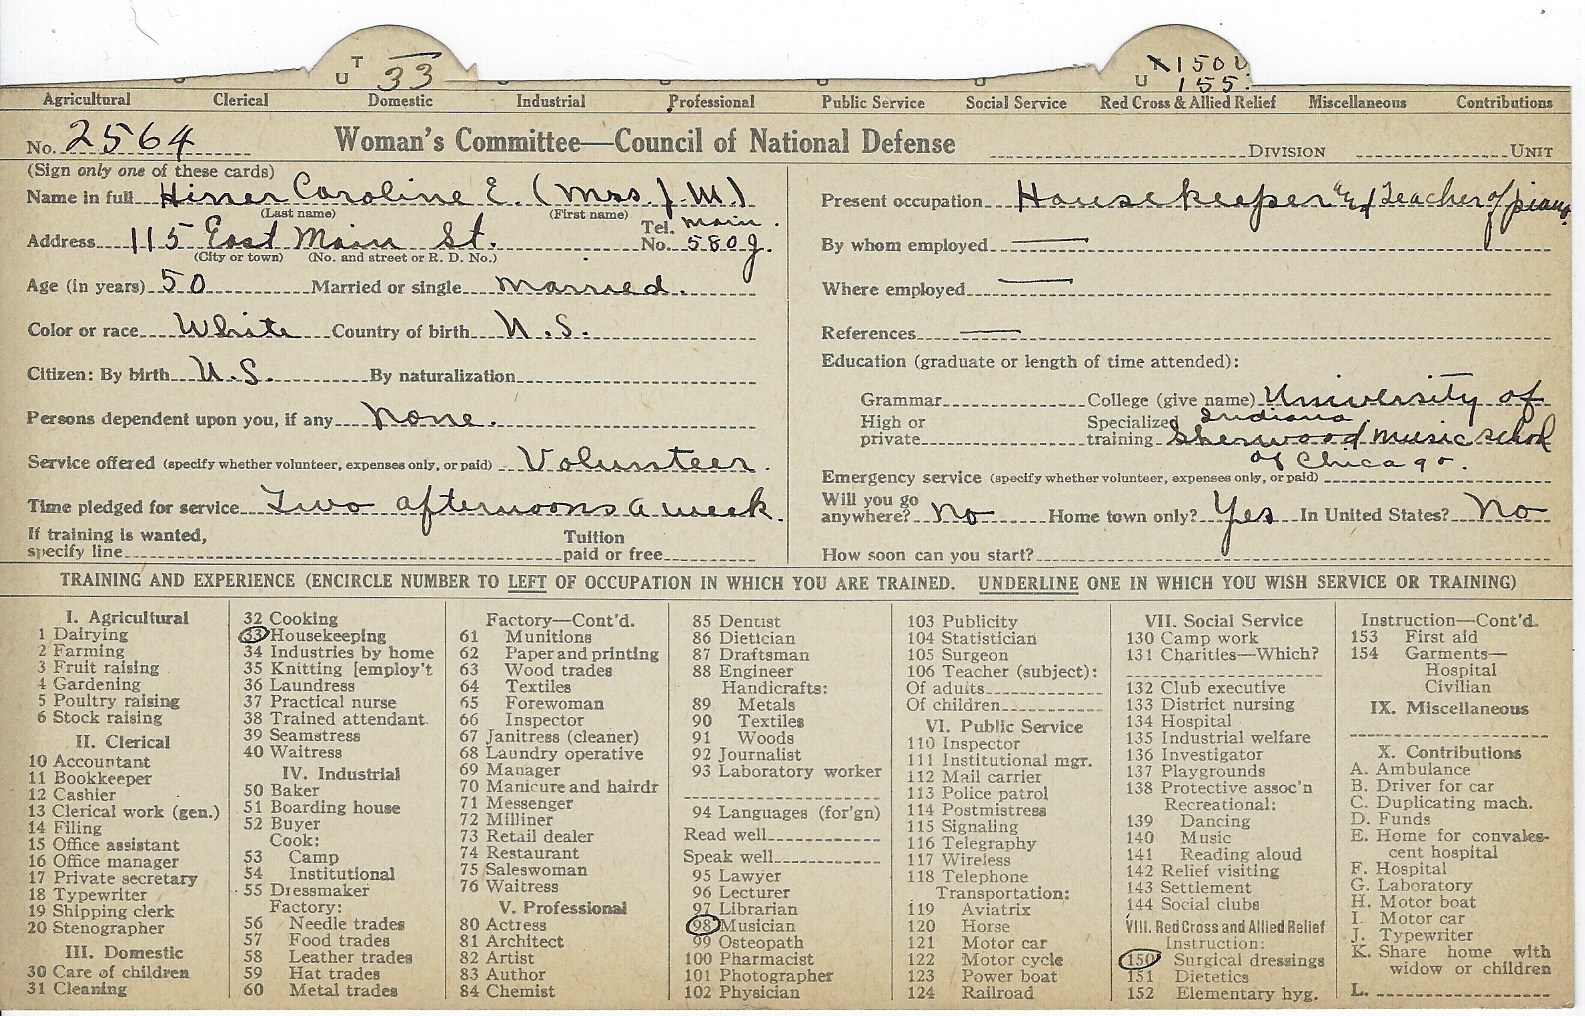 T
U 33
X 150 U
U 155.
Agricultural Clerical Domestic Industrial Professional Public Service Social Service Red Cross & Allied Relief Miscellaneous Contributions
No. 2564 Woman's Committee—Council of National Defense DIVISION UNIT
(Sign only one of these cards)
Name in full Hiner Caroline E. (Mrs J. M.)
(Last name) (First name)
Address 115 East Main St. Tel. No. Main 580 J.
(City or town) (No. and street or R. D. No.)
Age (in years) 50 Married or single Married.
Color or race White Country of birth U.S.
Citizen: By birth U.S. By naturalization
Persons dependent upon you, if any None.
Service offered (specify whether volunteer, expenses only, or paid) Volunteer.
Time pledged for service Two afternoons a week.
If training is wanted, specify line Tuition paid or free
Present occupation Housekeeper and Teacher of piano.
By whom employed —
Where employed —
References —
Education (graduate or length of time attended):
Grammar College (give name) University of Indiana,
High or private Specialized training Sherwood Music School of Chicago.
Emergency service (specify whether volunteer, expenses only, or paid)
Will you go anywhere? No Home town only? Yes In United States? No
How soon can you start?
TRAINING AND EXPERIENCE (ENCIRCLE NUMBER TO LEFT OF OCCUPATION IN WHICH YOU ARE TRAINED. UNDERLINE ONE IN WHICH YOU WISH SERVICE OR TRAINING)
I. Agricultural
1 Dairying
2 Farming
3 Fruit raising
4 Gardening
5 Poultry raising
6 Stock raising
II. Clerical
10 Accountant
11 Bookkeeper
12 Cashier
13 Clerical work (gen.)
14 Filing
15 Office assistant
16 Office manager
17 Private secretary
18 Typewriter
19 Shipping clerk
20 Stenographer
III. Domestic
30 Care of children
31 Cleaning
32 Cooking
33 Housekeeping
34 Industries by home
35 Knitting [employ't
36 Laundress
37 Practical nurse
38 Trained attendant
39 Seamstress
40 Waitress
IV. Industrial
50 Baker
51 Boarding house
52 Buyer
Cook:
53 Camp
54 Institutional
55 Dressmaker
Factory:
56 Needle trades
57 Food trades
58 Leather trades
59 Hat trades
60 Metal trades
Factory—Cont'd.
61 Munitions
62 Paper and printing
63 Wood trades
64 Textiles
65 Forewoman
66 Inspector
67 Janitress (cleaner)
68 Laundry operative
69 Manager
70 Manicure and hairdr
71 Messenger
72 Milliner
73 Retail dealer
74 Restaurant
75 Saleswoman
76 Waitress
V. Professional
80 Actress
81 Architect
82 Artist
83 Author
84 Chemist
85 Dentist
86 Dietician
87 Draftsman
88 Engineer
Handicrafts:
89 Metals
90 Textiles
91 Woods
92 Journalist
93 Laboratory worker
94 Languages (for'gn)
Read well
Speak well
95 Lawyer
96 Lecturer
97 Librarian
98 Musician
99 Osteopath
100 Pharmacist
101 Photographer
102 Physician
103 Publicity
104 Statistician
105 Surgeon
106 Teacher (subject):
Of adults
Of children
VI. Public Service
110 Inspector
111 Institutional mgr.
112 Mail carrier
113 Police patrol
114 Postmistress
115 Signaling
116 Telegraphy
117 Wireless
118 Telephone
Transportation:
119 Aviatrix
120 Horse
121 Motor car
122 Motor cycle
123 Power boat
124 Railroad
VII. Social Service
130 Camp work
131 Charities—Which?
132 Club executive
133 District nursing
134 Hospital
135 Industrial welfare
136 Investigator
137 Playgrounds
138 Protective assoc'n
Recreational:
139 Dancing
140 Music
141 Reading aloud
142 Relief visiting
143 Settlement
144 Social clubs
VIII. Red Cross and Allied Relief
Instruction:
150 Surgical dressings
151 Dietetics
152 Elementary hyg.
Instruction—Cont'd.
153 First aid
154 Garments—
Hospital
Civilian
IX. Miscellaneous
X. Contributions
A. Ambulance
B. Driver for car
C. Duplicating mach.
D. Funds
E. Home for convales-
cent hospital
F. Hospital
G. Laboratory
H. Motor boat
I. Motor car
J. Typewriter
K. Share home with
widow or children
L.